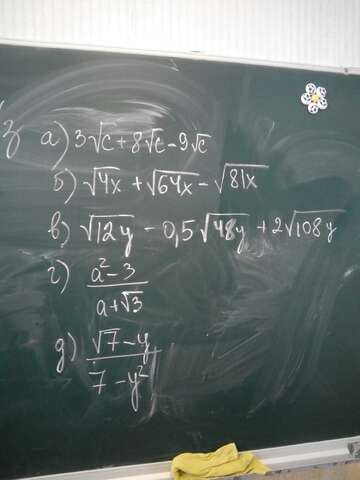 3 а) 3√c + 8√c - 9√c
б) √4x + √64x - √81x
в) √12y - 0,5√48y + 2√108y
г) (a² - 3) / (a + √3)
д) (√7 - y) / (7 - y²)